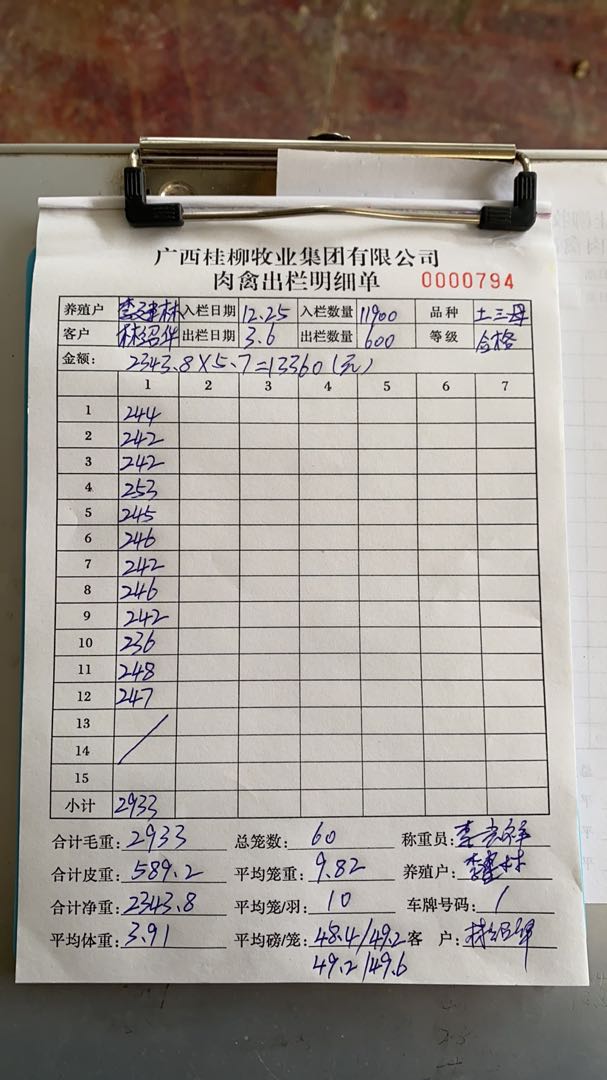 广西桂柳牧业集团有限公司
肉禽出栏明细单 0000794
养殖户 李建林 入栏日期 12.25 入栏数量 11900 品种 土三母
客户 林绍华 出栏日期 3.6 出栏数量 600 等级 合格
金额: 2343.8×5.7=13360(元)
1 2 3 4 5 6 7
1 244
2 242
3 242
4 253
5 245
6 246
7 242
8 246
9 242
10 236
11 248
12 247
13
14
15
小计 2933
合计毛重: 2933 总笼数: 60 称重员:
合计皮重: 589.2 平均笼重: 9.82 养殖户: 李建林
合计净重: 2343.8 平均笼/羽: 10 车牌号码: /
平均体重: 3.91 平均磅/笼: 48.4/49.2 客 户: 林绍华
49.2/49.6